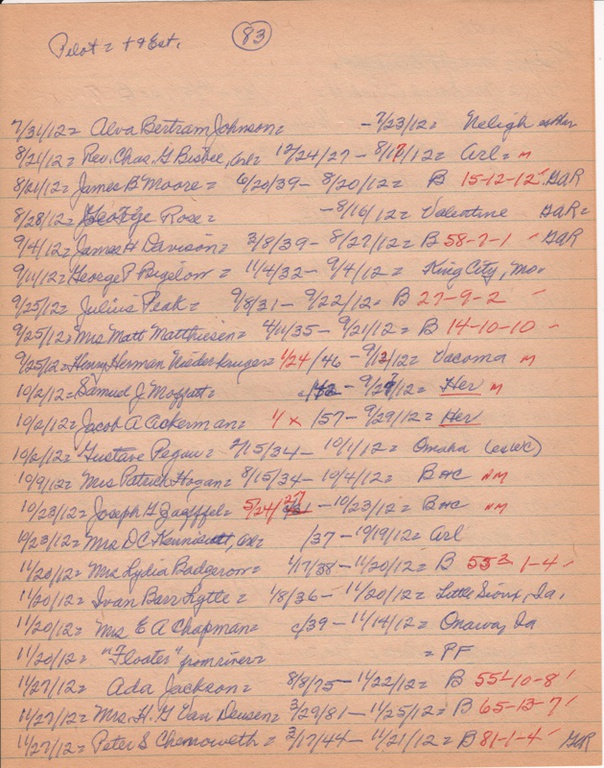 Pilot = + & Est. 83
7/31/12 = Alva Bertram Johnson = - 7/23/12 = Neligh
8/21/12 = Rev. Chas. G. Bisbee, Arl = 12/24/27 - 8/17/12 = Arl = m
8/21/12 = James B Moore = 6/20/39 - 8/20/12 = B 15-12-12 GAR
8/28/12 = George Rose = - 8/16/12 = Valentine GAR =
9/4/12 = James H Davison = 3/8/39 - 8/27/12 = B 58-7-1 GAR
9/11/12 = George P Bigelow = 11/4/32 - 9/4/12 = King City, Mo.
9/25/12 = Julius Peak = 9/8/31 - 9/22/12 = B 27-9-2
9/25/12 = Mrs Matt Matthiesen = 4/11/35 - 9/21/12 = B 14-10-10
9/25/12 = Henry Herman Niederkruger = 1/24/46 - 9/12/12 = Vacoma m
10/2/12 = Samuel J Moffatt = - 9/27/12 = Her m
10/2/12 = Jacob A Ackerman = 1/x/57 - 9/29/12 = Her
10/2/12 = Gustave Pegau = 2/15/34 - 10/1/12 = Omaha
10/9/12 = Mrs Patrick Hogan = 8/15/34 - 10/4/12 = B HC NM
10/23/12 = Joseph G = 5/24/27 - 10/23/12 = B HC NM
10/23/12 = Mrs D C, Arl = /37 - 10/19/12 = Arl
11/20/12 = Mrs Lydia Badgerow = 4/17/38 - 11/20/12 = B 55 1-4
11/20/12 = Ivan Barr Lytte = 1/8/36 - 11/20/12 = Little Sioux, Ia.
11/20/12 = Mrs E A Chapman = c/39 - 11/14/12 = Onawa, Ia
11/20/12 = "Floater" from river = = PF
11/27/12 = Ada Jackson = 8/8/75 - 11/22/12 = B 55-10-8
11/27/12 = Mrs. H. G Van Deusen = 3/29/81 - 11/25/12 = B 65-13-7
11/27/12 = Peter S Chenoweth = 2/17/44 - 11/21/12 = B 81-1-4 GAR